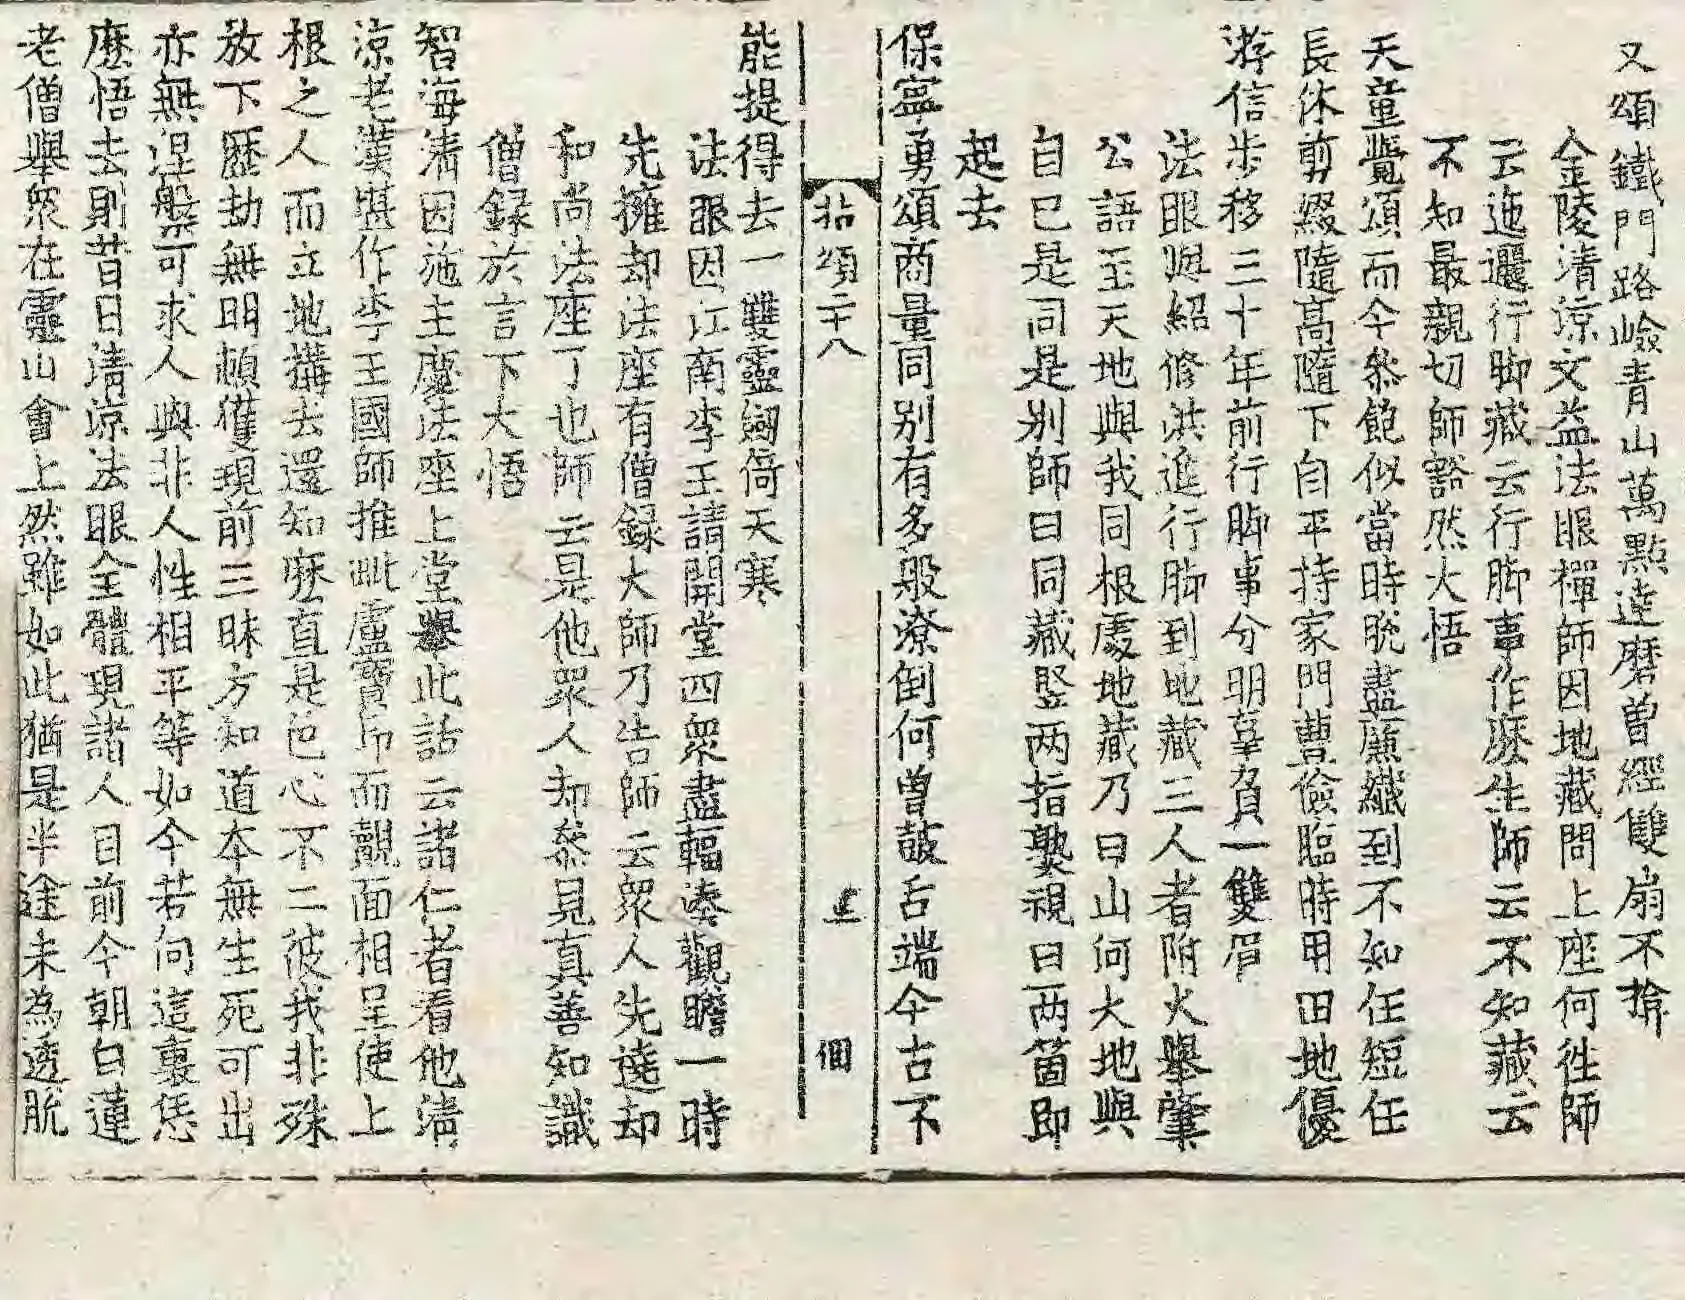 又頌鐵門路嶮青山萬點達磨曽經雙扇不揜
金陵清凉文益法眼禪師因地藏問上座何徃師
云迤邐行脚藏云行脚事作麽生師云不知藏云
不知最親切師豁然大悟
天童覺頌而今叅飽似當時脫盡廉纖到不知任短任
長休剪綴隨髙隨下自平持家門豊儉臨時用田地優
游信步移三十年前行脚事分明辜負一雙眉
法眼與紹修洪進行脚到地藏三人者附火舉肇
公語至天地與我同根處地藏乃曰山河大地與
自己是同是别師曰同藏竪两指熟視曰两箇即
起去
保寧勇頌商量同别有多般潦倒何曽皷舌端今古不
拈頌二十八 囙
能提得去一雙靈劒倚天寒
法眼因江南李王請開堂四衆盡輻湊觀瞻一時
先擁却法座有僧録大師乃告師云衆人先遶却
和尚法座了也師云是他衆人却叅見真善知識
僧録於言下大悟
智海清因施主慶法座上堂舉此話云諸仁者看他清
凉老漢堪作李王國師推毗盧寳印而覿面相呈使上
根之人而立地搆去還知麽直是色心不二彼我非殊
放下歷劫無明頓獲現前三昧方知道本無生死可出
亦無涅槃可求人與非人性相平等如今若向這裏恁
麽悟去則昔日清凉法眼全體現諸人目前今朝白蓮
老僧舉衆在靈山會上然雖如此猶是半途未為透脫